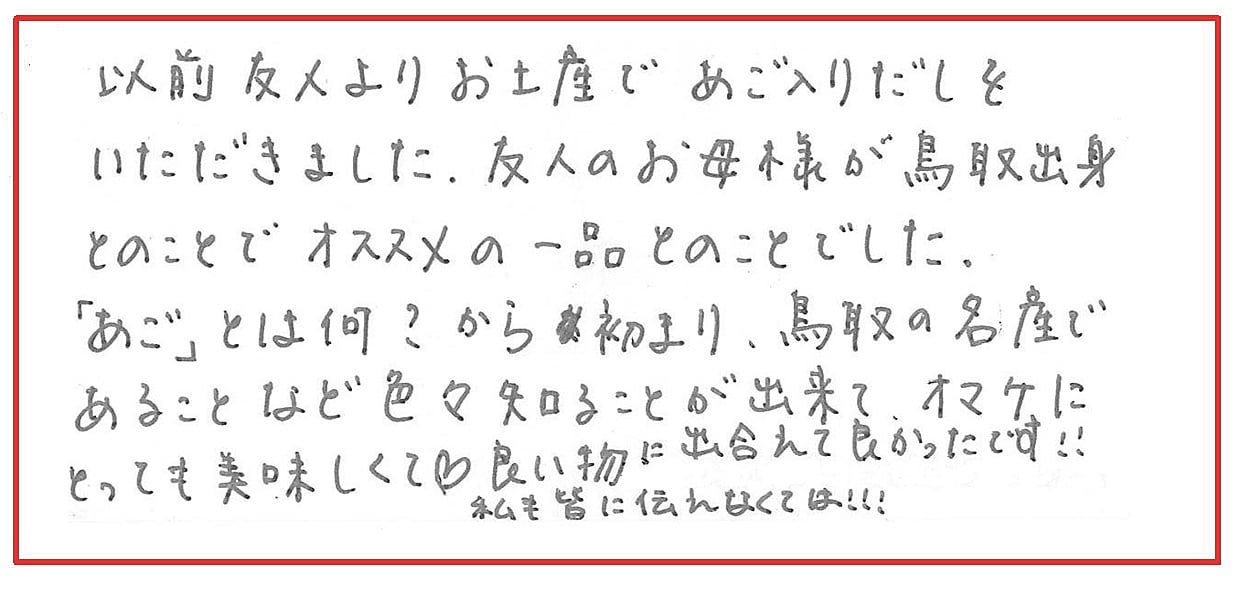 以前友人よりお土産であご入りだしを
いただきました.友人のお母様が鳥取出身
とのことでオススメの一品とのことでした.
「あご」とは何？から初まり、鳥取の名産で
あることなど色々知ることが出来て、オマケに
とっても美味しくて♡良い物に出合れて良かったです!!
私も皆に伝れなくては!!!